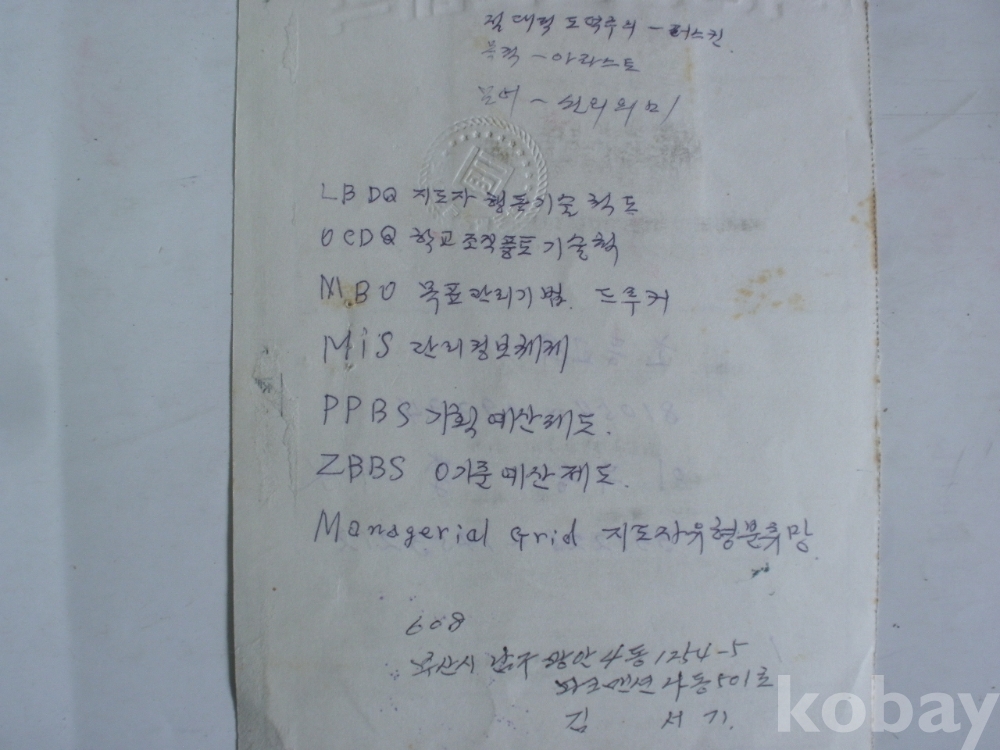 절대적 도덕주의 - 러스킨.
목적 - 아리스토
언어 - 선의의미
LBDQ 지도자 행동기술 척도
OCDQ 학교조직풍토기술척
MBO 목표관리기법. 드루커
MiS 관리정보체계
PPBS 기획예산제도.
ZBBS 0기준예산제도.
Managerial Grid 지도자유형분류망
608
부산시 남구 광안4동 1254-5
4동501호
김 서기.
kobay